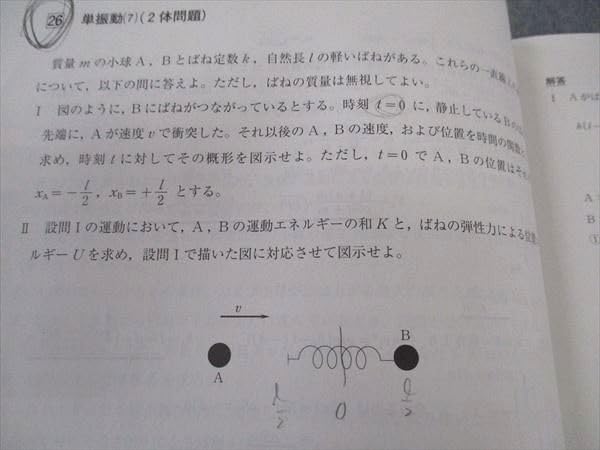 26 単振動(7)(2体問題)
質量 m の小球 A,B とばね定数 k,自然長 l の軽いばねがある。これらの一直線
について,以下の問に答えよ。ただし,ばねの質量は無視してよい。
I 図のように,B にばねがつながっているとする。時刻 t=0 に,静止しているBの
先端に,A が速度 v で衝突した。それ以後の A,B の速度,および位置を時間の関数
求め,時刻 t に対してその概形を図示せよ。ただし,t=0 で A,B の位置は
x_A=-l/2,x_B=+l/2 とする。
II 設問 I の運動において,A,B の運動エネルギーの和 K と,ばねの弾性力による位置
ルギー U を求め,設問 I で描いた図に対応させて図示せよ。
v
A
B
l/2
0
l/2
解答
I Aがば
k(l-
A
B
①